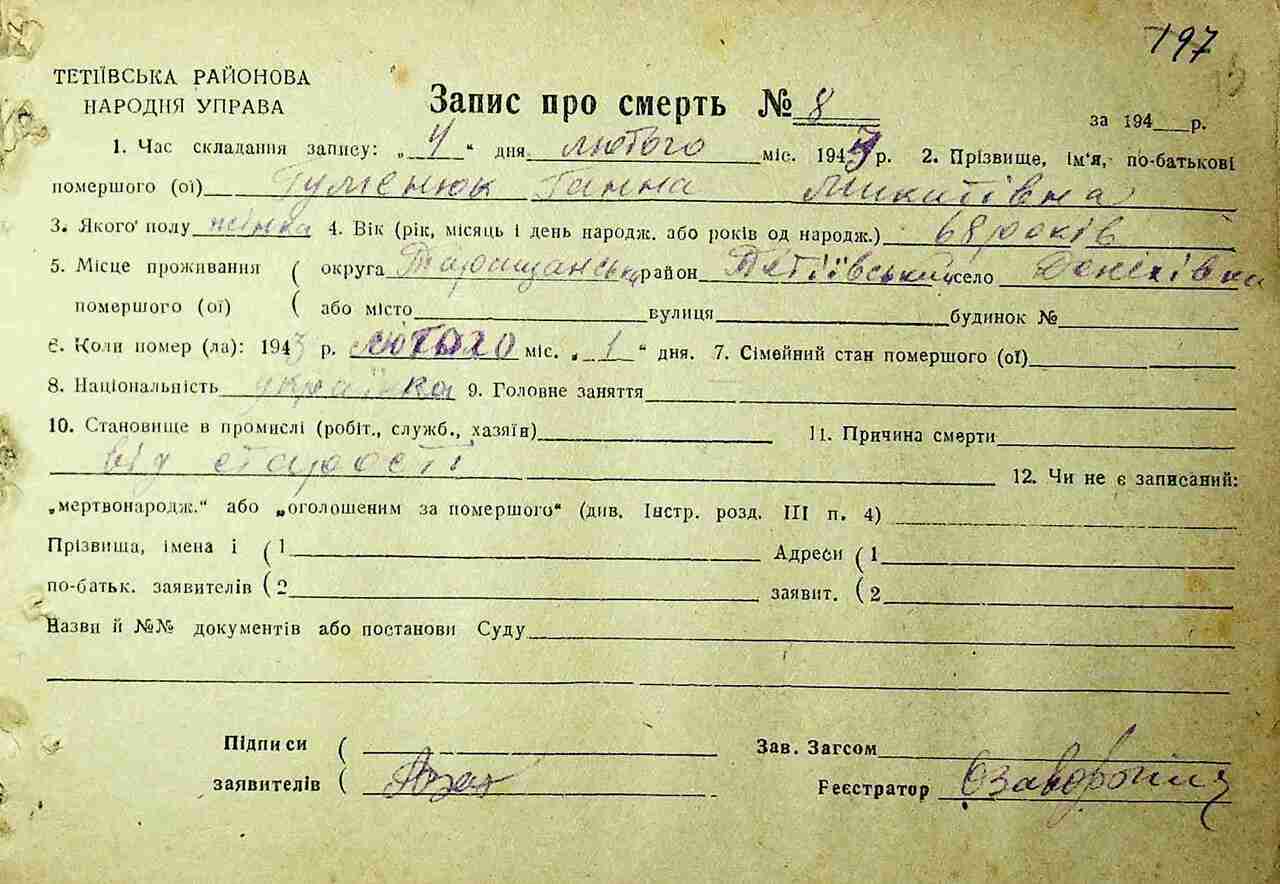 197
ТЕТІЇВСЬКА РАЙОНОВА
НАРОДНЯ УПРАВА
Запис про смерть № 8
за 194 р.
1. Час складання запису: „4“ дня лютого міс. 1943 р. 2. Прізвище, ім'я, по-батькові
помершого (ої) Гуменюк Ганна Микитівна
3. Якого полу жінка 4. Вік (рік, місяць і день народж. або років од народж.) 68 років
5. Місце проживання ( округа Таращанська район Тетіївський село Денихівка
помершого (ої) ( або місто вулиця будинок №
6. Коли помер (ла): 1943 р. лютого міс. „1“ дня. 7. Сімейний стан помершого (ої)
8. Національність українка 9. Головне заняття —
10. Становище в промислі (робіт., служб., хазяїн) 11. Причина смерти
від старості 12. Чи не є записаний:
„мертвонародж.“ або „оголошеним за помершого“ (див. Інстр. розд. III п. 4)
Прізвища, імена і ( 1 Адреси ( 1
по-батьк. заявителів ( 2 заявит. ( 2
Назви й №№ документів або постанови Суду
Підписи ( Зав. Загсом
заявителів ( Реєстратор